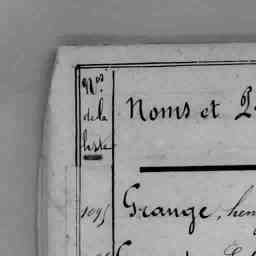 Nos
de la
liste
Noms et
1095
Grange, hen